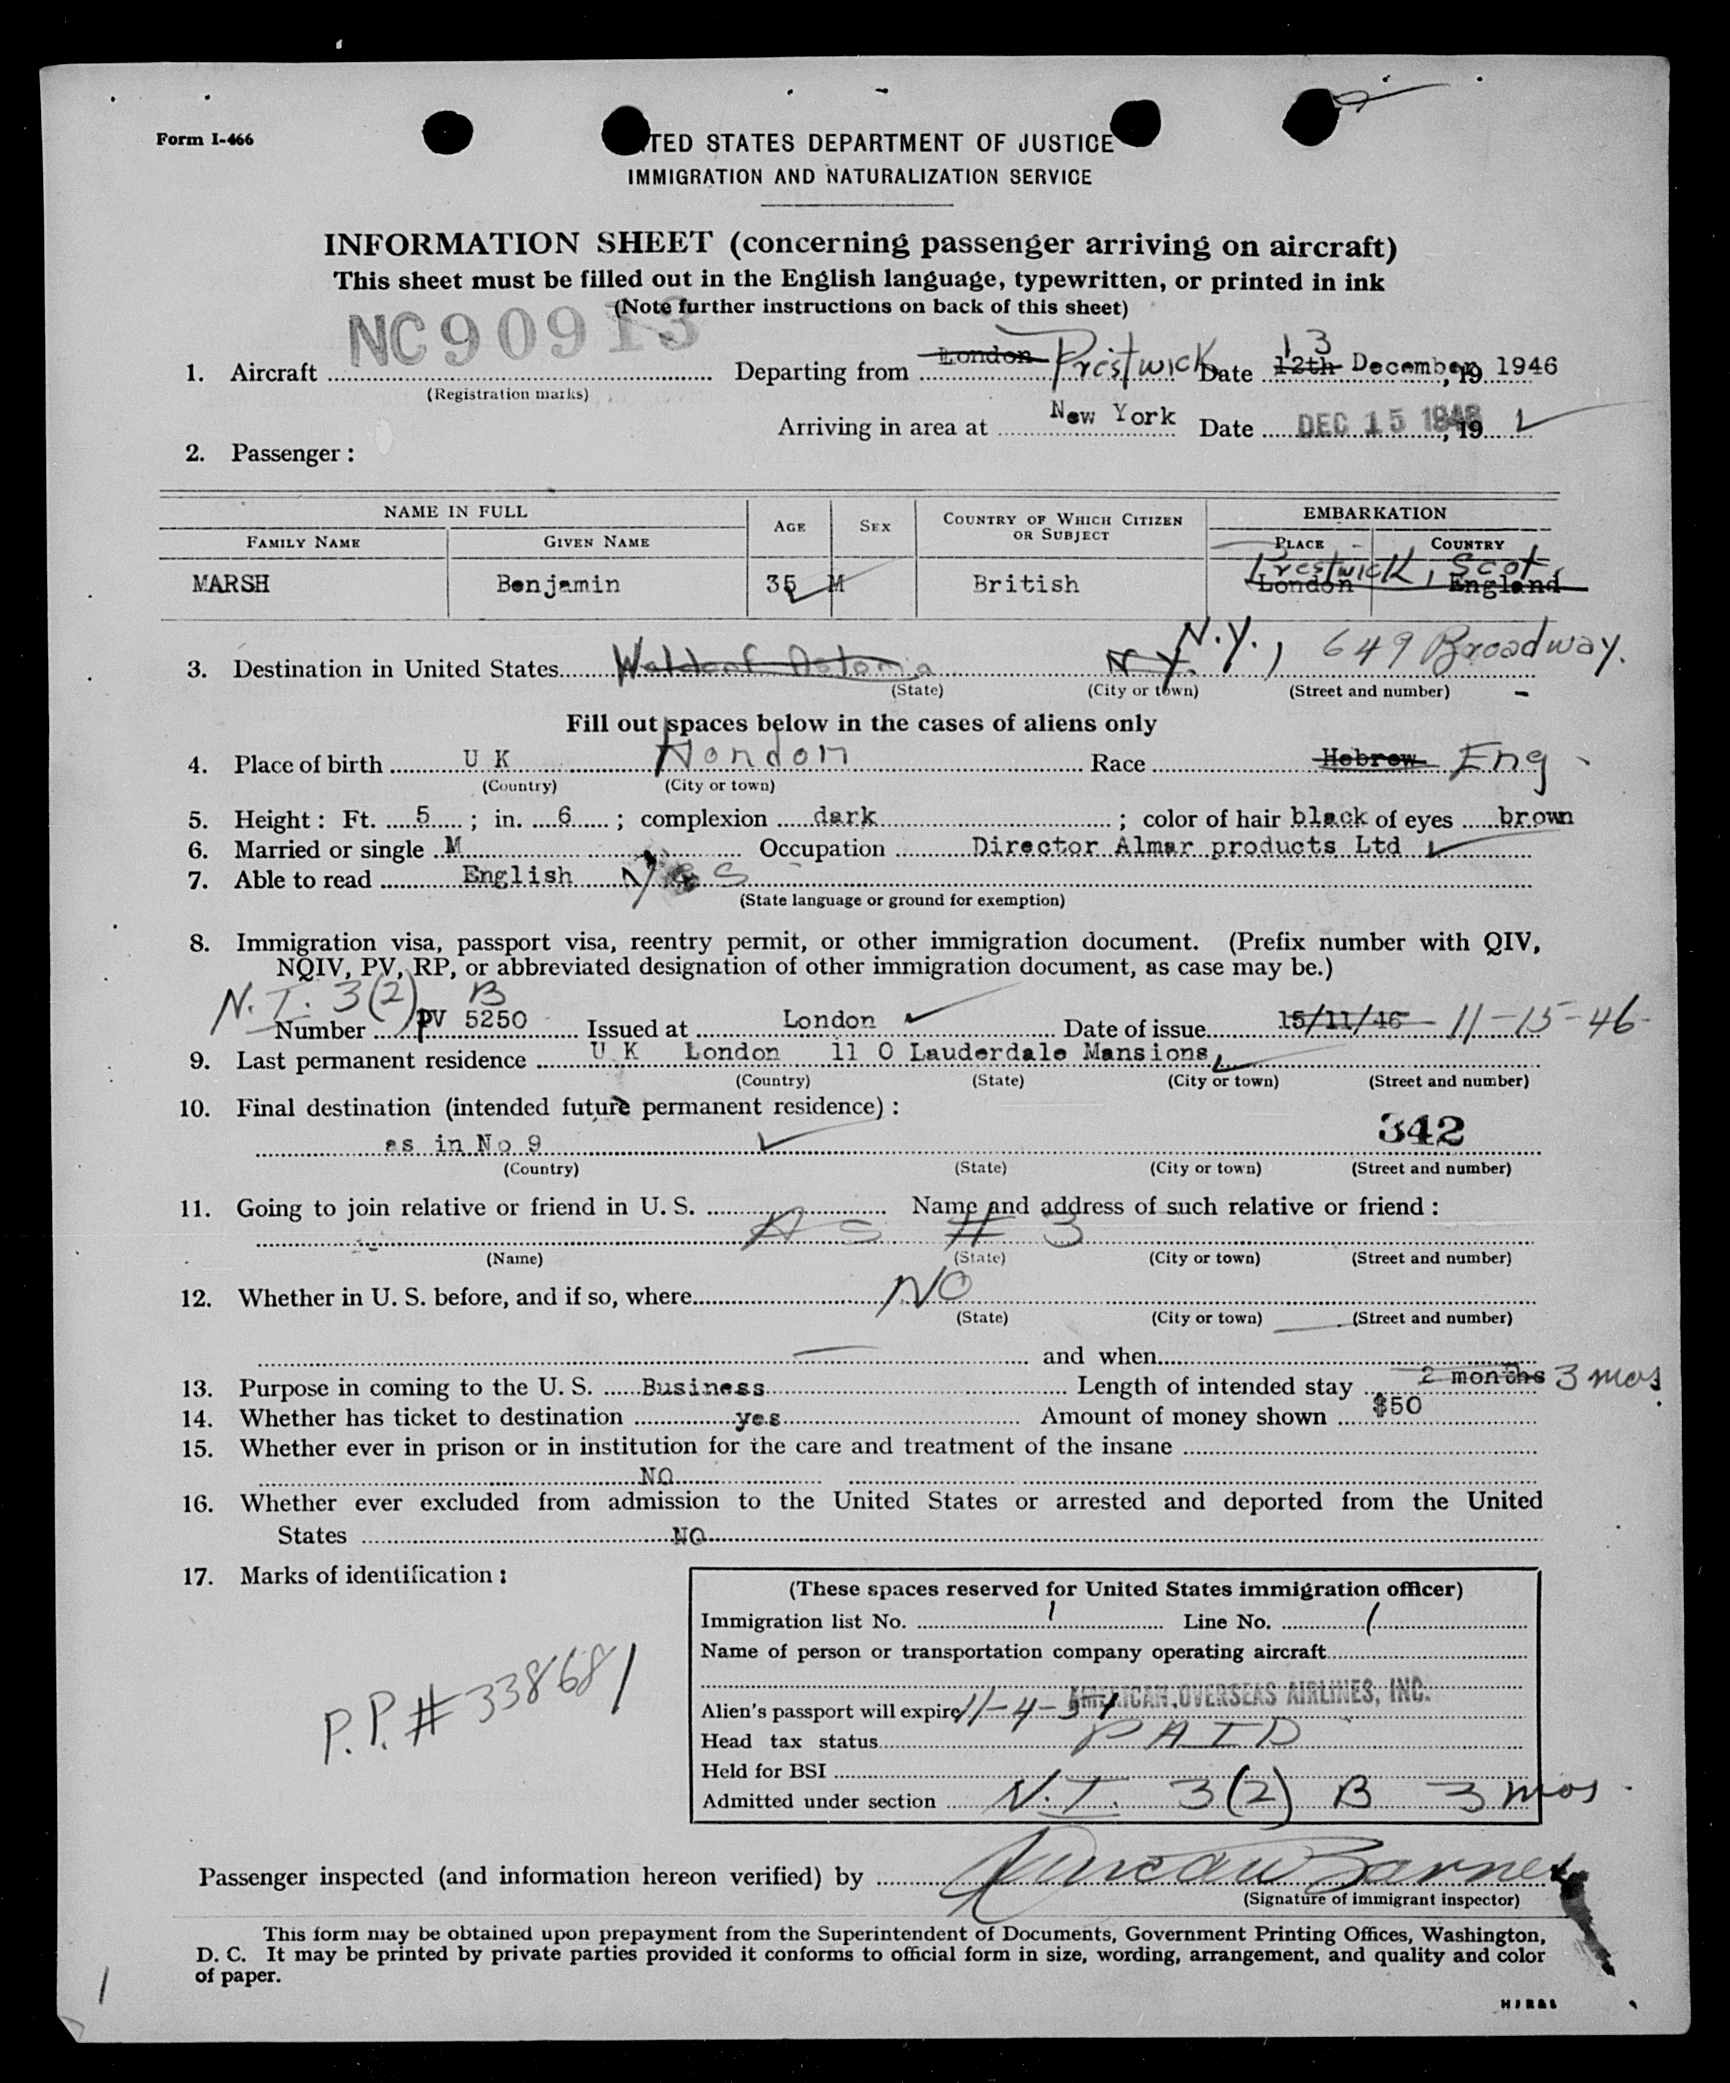 Form I-466
TED STATES DEPARTMENT OF JUSTICE
IMMIGRATION AND NATURALIZATION SERVICE
INFORMATION SHEET (concerning passenger arriving on aircraft)
This sheet must be filled out in the English language, typewritten, or printed in ink
(Note further instructions on back of this sheet)
NC90913
1. Aircraft Departing from London Prestwick Date 12th 13 December, 19 1946
(Registration marks)
Arriving in area at New York Date DEC 15 1946, 19
2. Passenger:
NAME IN FULL AGE SEX COUNTRY OF WHICH CITIZEN OR SUBJECT EMBARKATION
FAMILY NAME GIVEN NAME PLACE COUNTRY
Prestwick, Scot.
MARSH Benjamin 35 M British London England
3. Destination in United States Waldorf Astoria N.Y. N.Y., 649 Broadway.
(State) (City or town) (Street and number)
Fill out spaces below in the cases of aliens only
4. Place of birth U K London Race Hebrew Eng
(Country) (City or town)
5. Height: Ft. 5; in. 6; complexion dark; color of hair black of eyes brown
6. Married or single M Occupation Director Almar products Ltd
7. Able to read English Yes
(State language or ground for exemption)
8. Immigration visa, passport visa, reentry permit, or other immigration document. (Prefix number with QIV,
NQIV, PV, RP, or abbreviated designation of other immigration document, as case may be.)
N.T. 3(2) B
Number PV 5250 Issued at London Date of issue 15/11/46 11-15-46
9. Last permanent residence U K London 11 O Lauderdale Mansions,
(Country) (State) (City or town) (Street and number)
10. Final destination (intended future permanent residence):
as in No 9 342
(Country) (State) (City or town) (Street and number)
11. Going to join relative or friend in U. S. Name and address of such relative or friend:
As # 3
(Name) (State) (City or town) (Street and number)
12. Whether in U. S. before, and if so, where NO
(State) (City or town) (Street and number)
and when
13. Purpose in coming to the U. S. Business Length of intended stay 2 months 3 mos
14. Whether has ticket to destination yes Amount of money shown $50
15. Whether ever in prison or in institution for the care and treatment of the insane
NO
16. Whether ever excluded from admission to the United States or arrested and deported from the United
States NO
17. Marks of identification:
P.P. # 338681
(These spaces reserved for United States immigration officer)
Immigration list No. 1 Line No. 1
Name of person or transportation company operating aircraft
AMERICAN OVERSEAS AIRLINES, INC.
Alien's passport will expire 11-4-51
Head tax status PAID
Held for BSI
Admitted under section N.T. 3(2) B 3 mos
Passenger inspected (and information hereon verified) by
(Signature of immigrant inspector)
This form may be obtained upon prepayment from the Superintendent of Documents, Government Printing Offices, Washington,
D. C. It may be printed by private parties provided it conforms to official form in size, wording, arrangement, and quality and color
of paper.
1